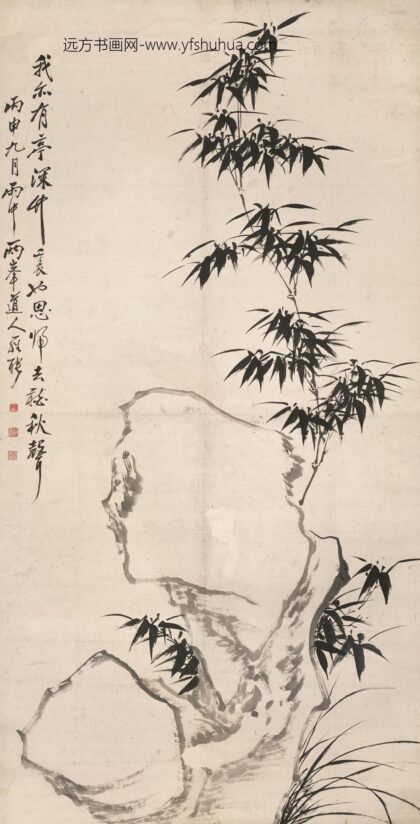 远方书画网-www.yfshuhua.com
我亦有亭深竹裏也思歸去聽秋聲
丙申九月雨中兩峯道人羅聘